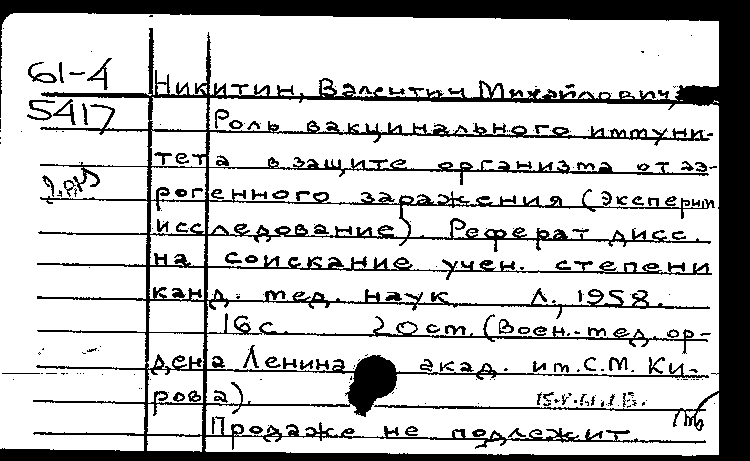 61-4
5417
Никитин, Валентин Михайлович,
Роль вакцинального иммуни-
тета в защите организма от аэ-
рогенного заражения (Эксперим.
исследование). Реферат дисс.
на соискание учен. степени
канд. мед. наук Л., 1958.
16 с. 20 ст. (Воен.-мед. ор-
дена Ленина акад. им. С.М. Ки-
рова).
15.V.61.1В.
Продаже не подлежит.